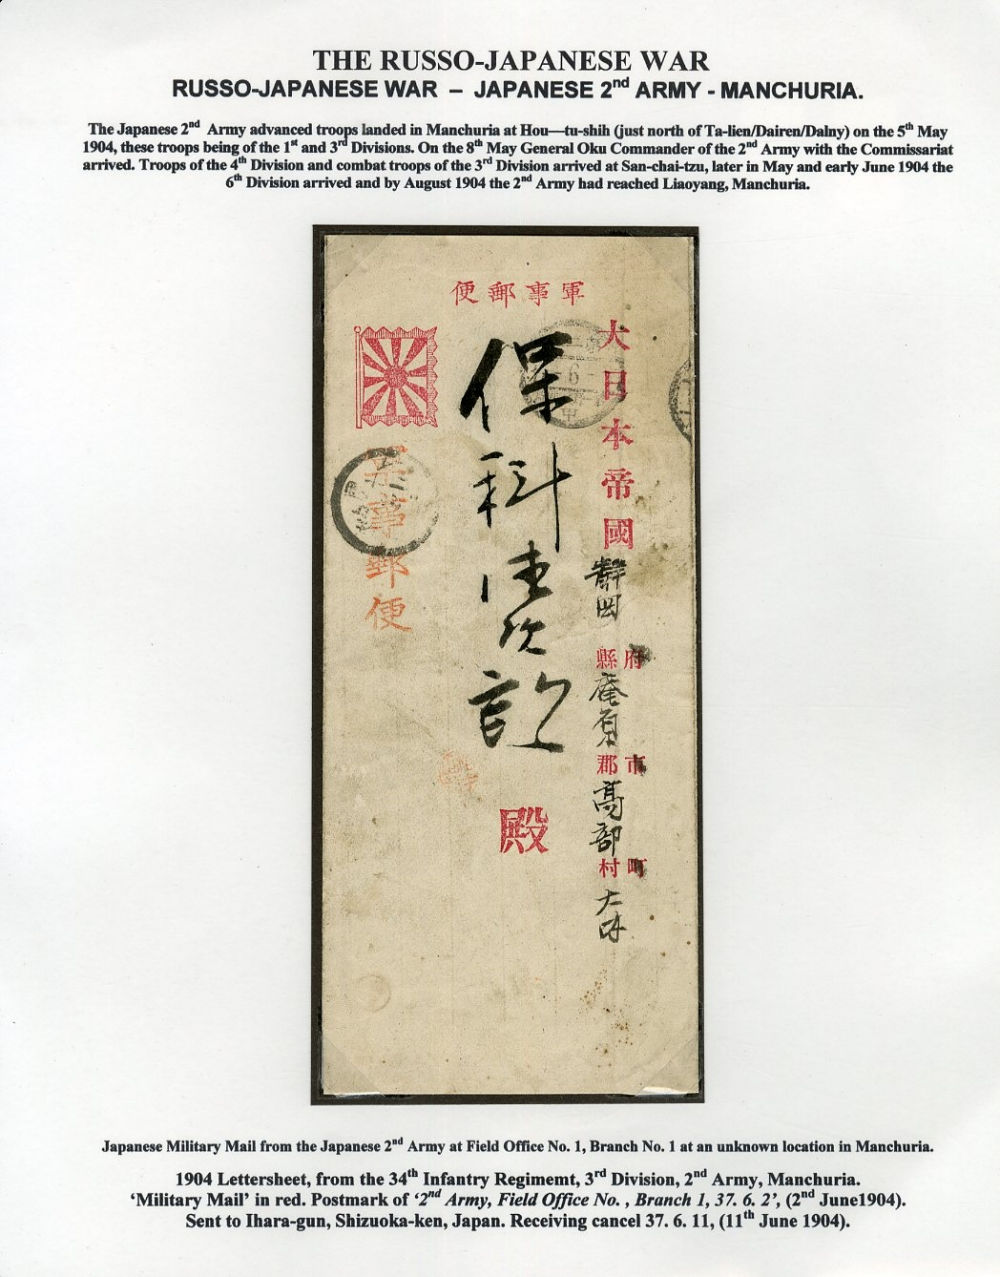 THE RUSSO-JAPANESE WAR
RUSSO-JAPANESE WAR – JAPANESE 2nd ARMY - MANCHURIA.
The Japanese 2nd Army advanced troops landed in Manchuria at Hou—tu-shih (just north of Ta-lien/Dairen/Dalny) on the 5th May
1904, these troops being of the 1st and 3rd Divisions. On the 8th May General Oku Commander of the 2nd Army with the Commissariat
arrived. Troops of the 4th Division and combat troops of the 3rd Division arrived at San-chai-tzu, later in May and early June 1904 the
6th Division arrived and by August 1904 the 2nd Army had reached Liaoyang, Manchuria.
便郵事軍
大日本帝國
靜岡
府
縣
庵原
市
郡
高部
町
村
大内
保科
殿
軍事郵便
Japanese Military Mail from the Japanese 2nd Army at Field Office No. 1, Branch No. 1 at an unknown location in Manchuria.
1904 Lettersheet, from the 34th Infantry Regimemt, 3rd Division, 2nd Army, Manchuria.
‘Military Mail’ in red. Postmark of ‘2nd Army, Field Office No. , Branch 1, 37. 6. 2’, (2nd June1904).
Sent to Ihara-gun, Shizuoka-ken, Japan. Receiving cancel 37. 6. 11, (11th June 1904).